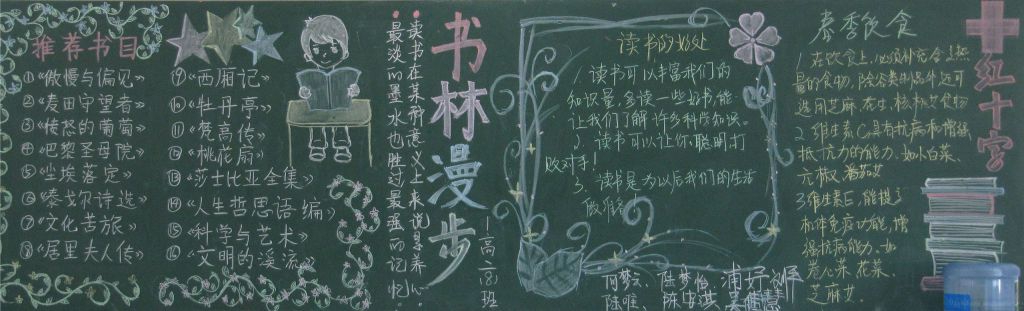 推荐书目
①《傲慢与偏见》
②《麦田守望者》
③《愤怒的葡萄》
④《巴黎圣母院》
⑤《尘埃落定》
⑥《泰戈尔诗选》
⑦《文化苦旅》
⑧《居里夫人传》
⑨《西厢记》
⑩《牡丹亭》
⑪《梵高传》
⑫《桃花扇》
⑬《莎士比亚全集》
⑭《人生哲思语编》
⑮《科学与艺术》
⑯《文明的溪流》
读书在某种意义上来说是养心
最淡的墨水也胜过最强的记忆
书林漫步
读书的好处
1. 读书可以丰富我们的
知识量,多读一些好书,能
让我们了解许多科学知识。
2. 读书可以让你聪明,打
败对手!
3. 读书是为以后我们的生活
春季饮食
1. 在饮食上,必须补充含
量的食物,除谷类制品外还可
选用芝麻、花生、核桃
2. 维生素C具有抗病和增强
抵抗力的能力,如小白菜、
3. 维生素E,能提
机体免疫功能,增
强抗病能力,如
卷心菜、花菜、
芝麻
红十字